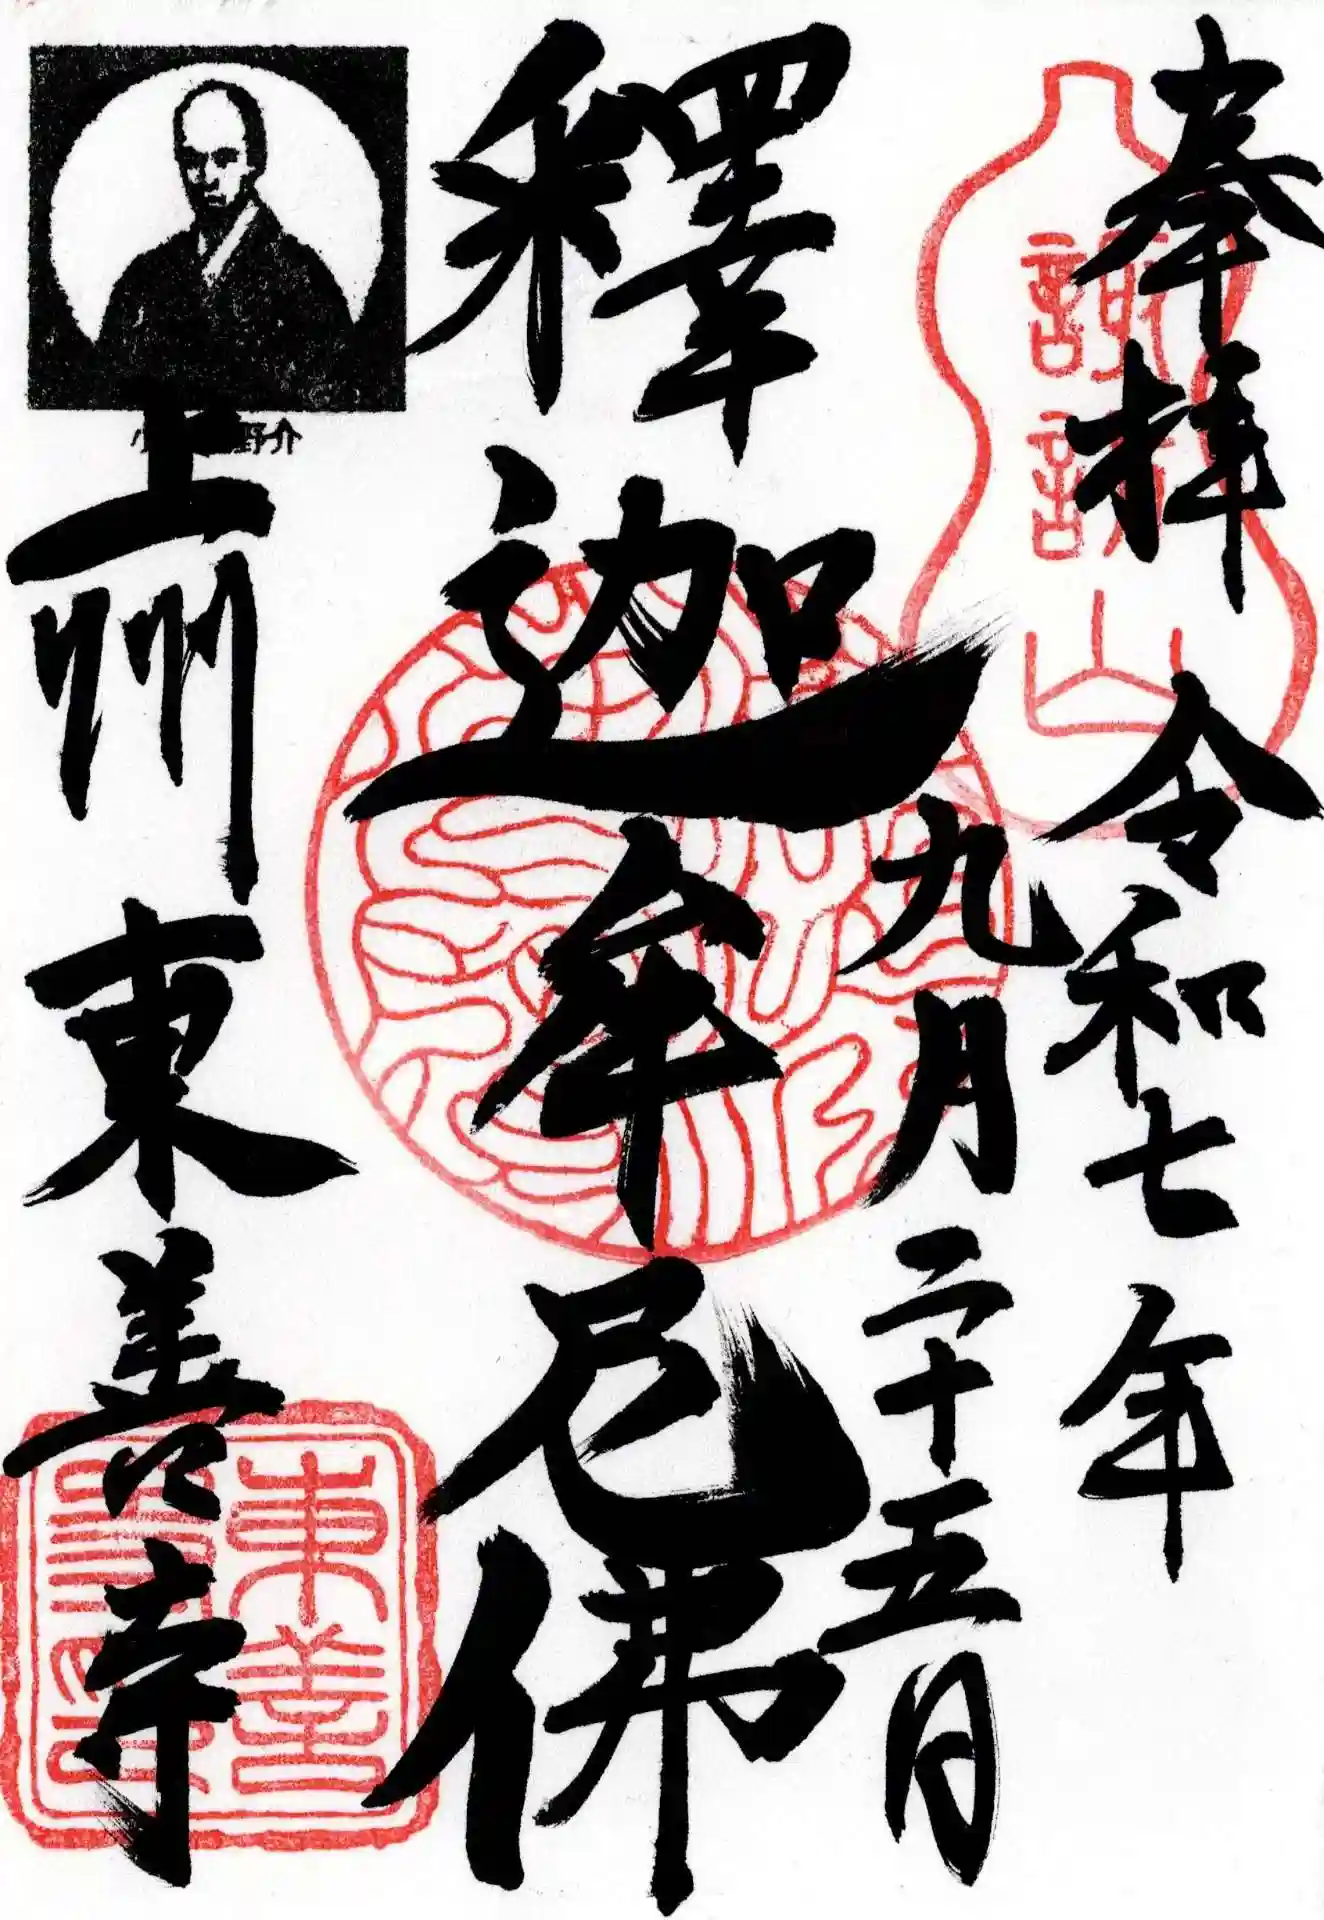 奉拝 令和七年
九月二十五日
釋迦牟尼佛
上州東善寺
諏訪山
野介
東善